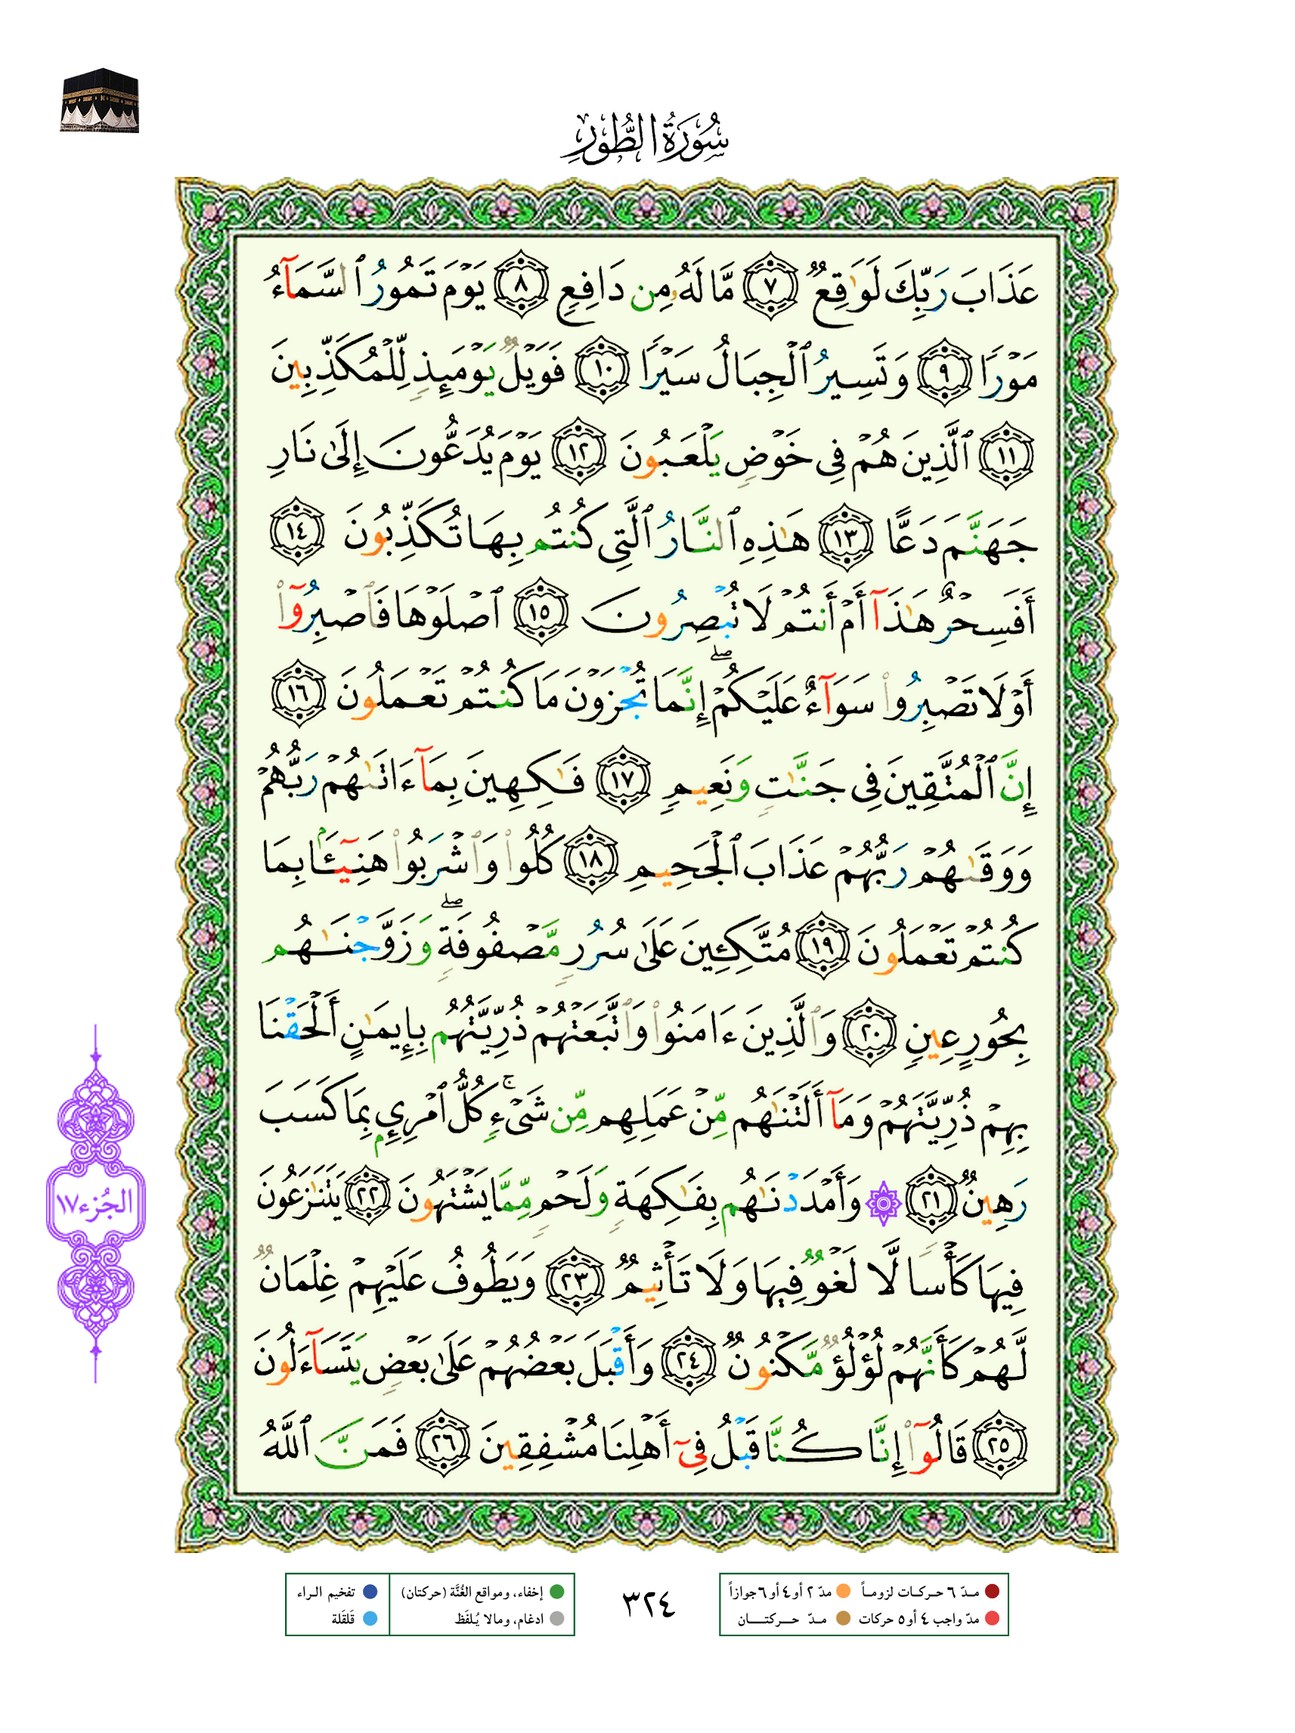 سُورَةُ الطُّورِ
عَذَابَ رَبِّكَ لَوَٰقِعٌ ٧ مَّا لَهُۥ مِن دَافِعٍ ٨ يَوْمَ تَمُورُ ٱلسَّمَآءُ
مَوْرًا ٩ وَتَسِيرُ ٱلْجِبَالُ سَيْرًا ١٠ فَوَيْلٌ يَوْمَئِذٍ لِّلْمُكَذِّبِينَ
١١ ٱلَّذِينَ هُمْ فِى خَوْضٍ يَلْعَبُونَ ١٢ يَوْمَ يُدَعُّونَ إِلَىٰ نَارِ
جَهَنَّمَ دَعًّا ١٣ هَٰذِهِ ٱلنَّارُ ٱلَّتِى كُنتُم بِهَا تُكَذِّبُونَ ١٤
أَفَسِحْرٌ هَٰذَآ أَمْ أَنتُمْ لَا تُبْصِرُونَ ١٥ ٱصْلَوْهَا فَٱصْبِرُوٓا۟
أَوْ لَا تَصْبِرُوا۟ سَوَآءٌ عَلَيْكُمْ ۖ إِنَّمَا تُجْزَوْنَ مَا كُنتُمْ تَعْمَلُونَ ١٦
إِنَّ ٱلْمُتَّقِينَ فِى جَنَّٰتٍ وَنَعِيمٍ ١٧ فَٰكِهِينَ بِمَآ ءَاتَىٰهُمْ رَبُّهُمْ
وَوَقَىٰهُمْ رَبُّهُمْ عَذَابَ ٱلْجَحِيمِ ١٨ كُلُوا۟ وَٱشْرَبُوا۟ هَنِيٓـًٔۢا بِمَا
كُنتُمْ تَعْمَلُونَ ١٩ مُتَّكِـِٔينَ عَلَىٰ سُرُرٍ مَّصْفُوفَةٍ ۖ وَزَوَّجْنَٰهُم
بِحُورٍ عِينٍ ٢٠ وَٱلَّذِينَ ءَامَنُوا۟ وَٱتَّبَعَتْهُمْ ذُرِّيَّتُهُم بِإِيمَٰنٍ أَلْحَقْنَا
بِهِمْ ذُرِّيَّتَهُمْ وَمَآ أَلَتْنَٰهُم مِّنْ عَمَلِهِم مِّن شَىْءٍ ۚ كُلُّ ٱمْرِئٍۭ بِمَا كَسَبَ
رَهِينٌ ٢١ ۞ وَأَمْدَدْنَٰهُم بِفَٰكِهَةٍ وَلَحْمٍ مِّمَّا يَشْتَهُونَ ٢٢ يَتَنَٰزَعُونَ
فِيهَا كَأْسًا لَّا لَغْوٌ فِيهَا وَلَا تَأْثِيمٌ ٢٣ وَيَطُوفُ عَلَيْهِمْ غِلْمَانٌ
لَّهُمْ كَأَنَّهُمْ لُؤْلُؤٌ مَّكْنُونٌ ٢٤ وَأَقْبَلَ بَعْضُهُمْ عَلَىٰ بَعْضٍ يَتَسَآءَلُونَ
٢٥ قَالُوٓا۟ إِنَّا كُنَّا قَبْلُ فِىٓ أَهْلِنَا مُشْفِقِينَ ٢٦ فَمَنَّ ٱللَّهُ
الجُزء ١٧
مدّ ٦ حركات لزوماً
مدّ ٢ أو ٤ أو ٦ جوازاً
مدّ واجب ٤ أو ٥ حركات
مدّ حركتان
٣٢٤
إخفاء، ومواقع الغُنَّة (حركتان)
تفخيم الراء
ادغام، ومالا يُلفَظ
قَلقَلة